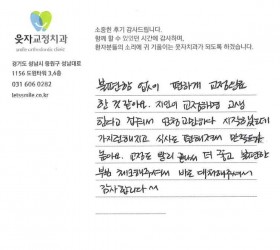 소중한 후기 감사드립니다.
함께 할 수 있었던 시간에 감사하며,
환자분들의 소리에 귀 기울이는 웃자치과가 되도록 하겠습니다.
웃자교정치과
smile orthodontic clinic
경기도 성남시 중원구 성남대로
1156 도원타워 3,4층
031 606 0282
letssmile.co.kr
불편함 없이 편하게 교정치료
한 것 같아요. 치열이 교정하면 고생
한다고 해서 고민하다가 시작했는데
가지런해지고 식사도 편해져서 만족도가
높아요. 교정도 빨리 끝나서 더 좋고 불편한
부분 체크해주셔서 바로 대처해주셔서
감사합니다^^